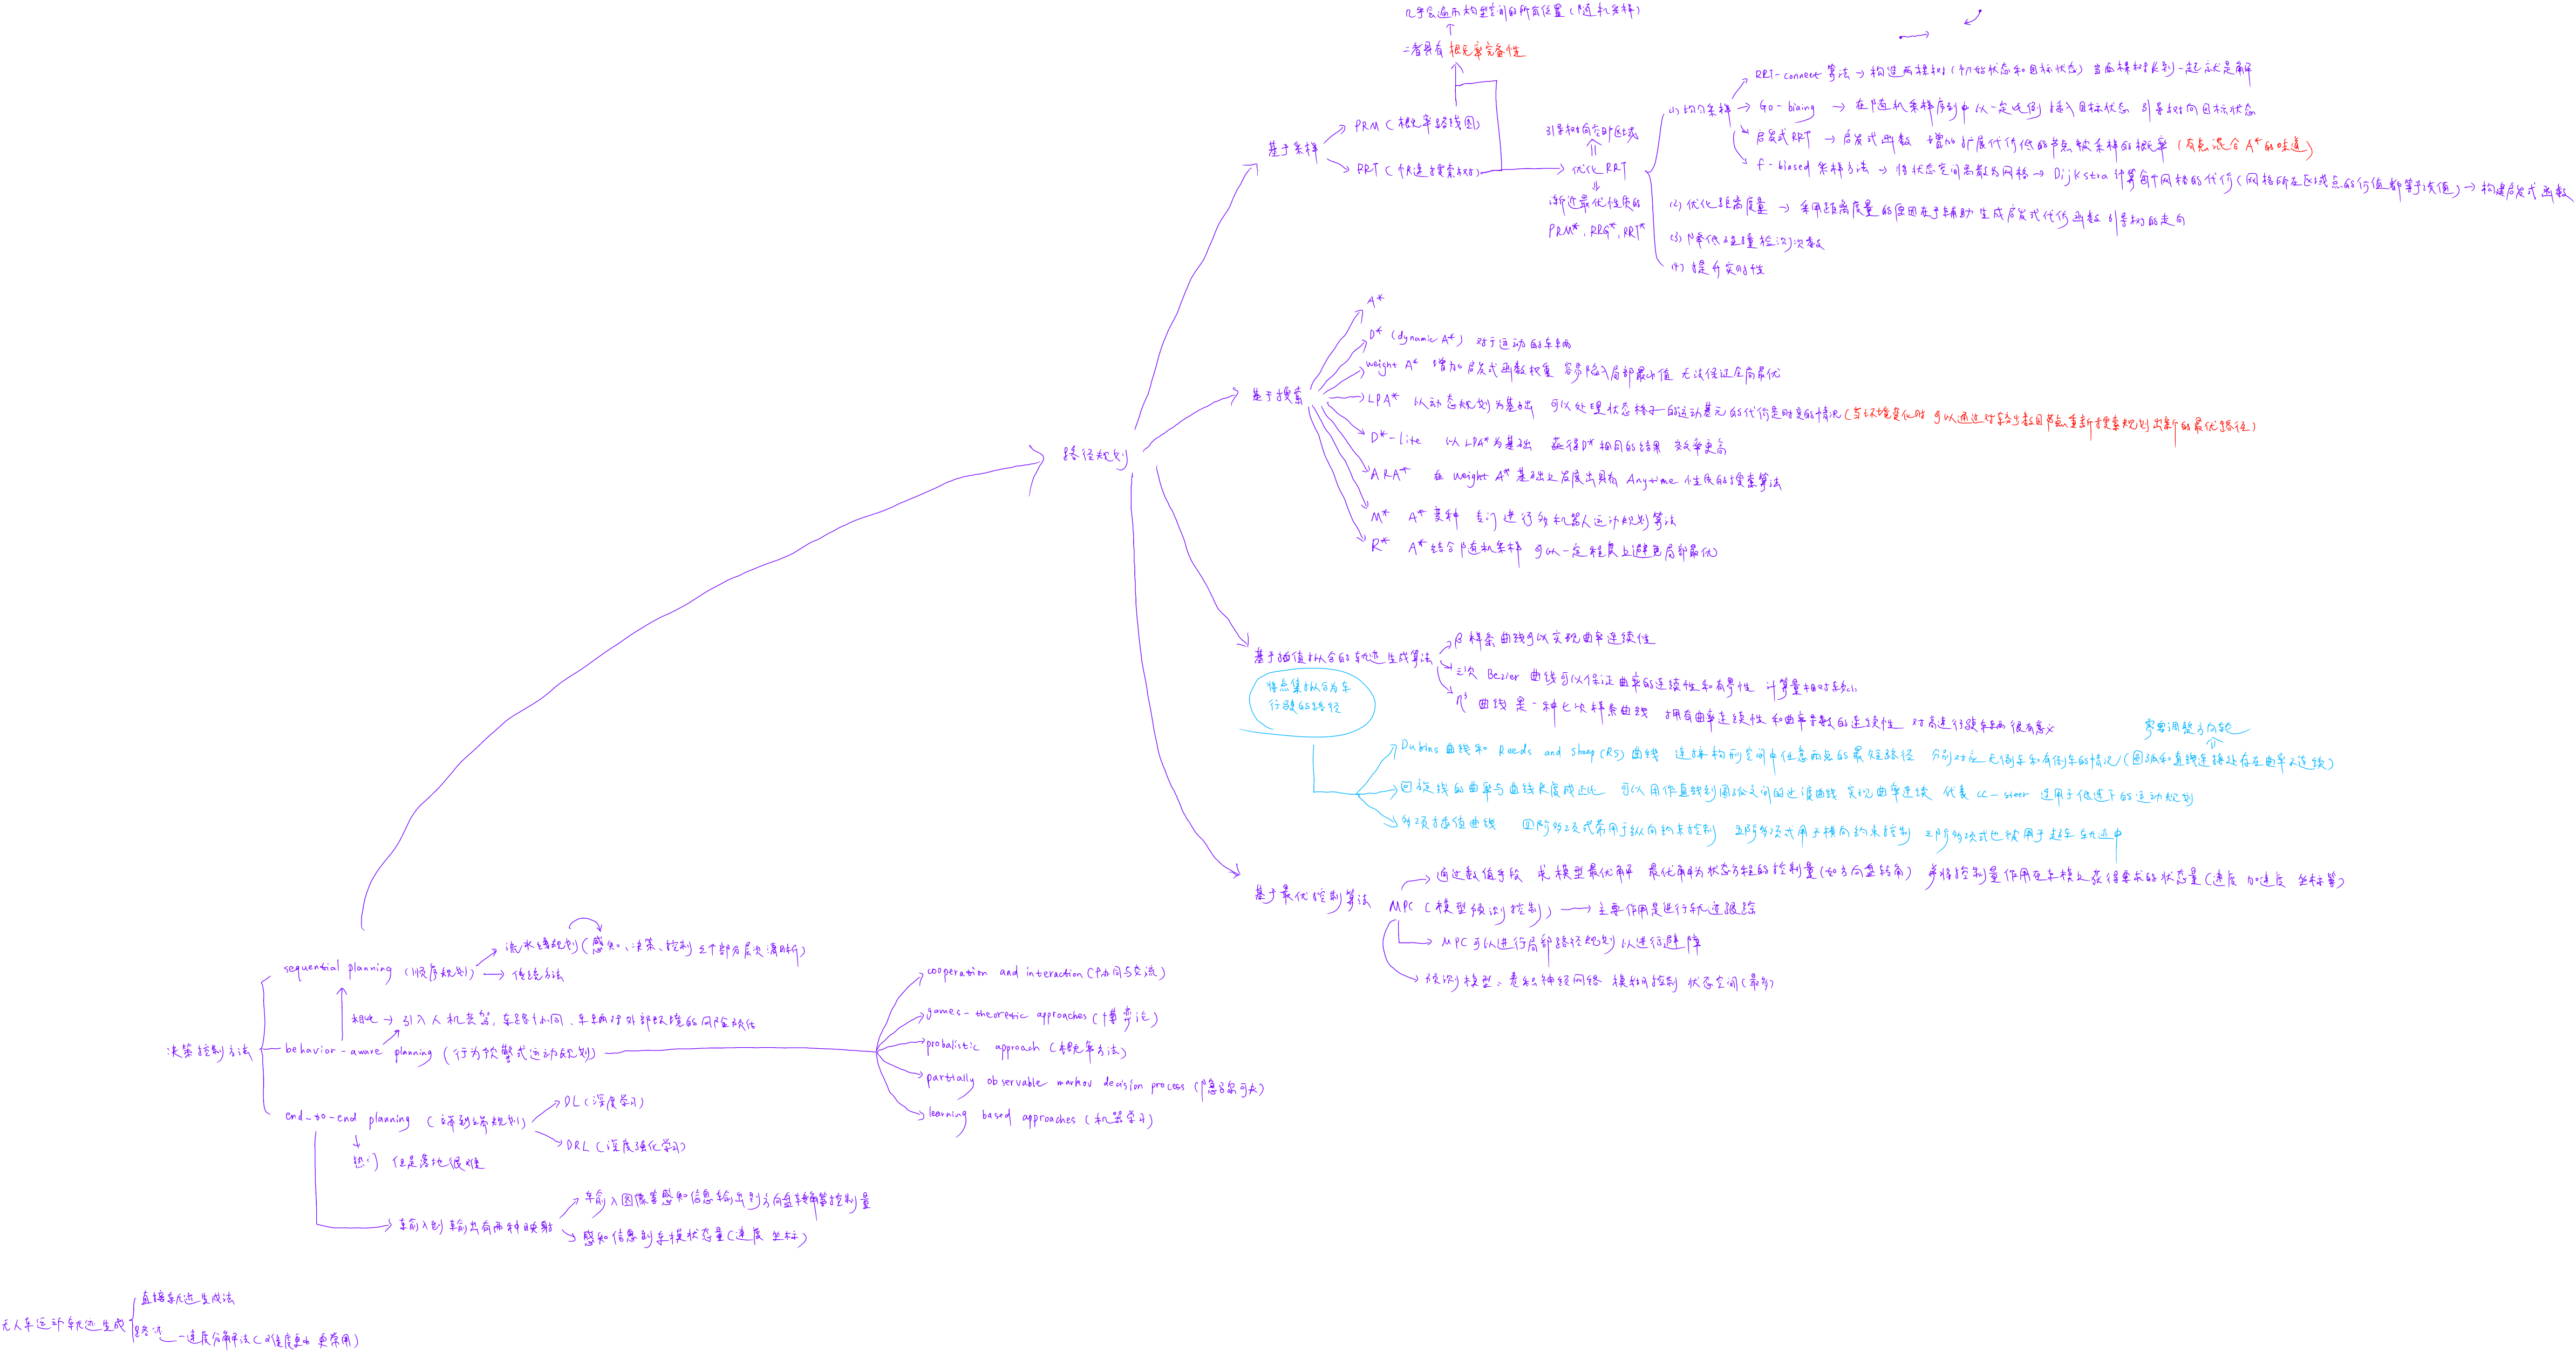 几乎会遍布构型空间的所有位置(随机采样)
二者具有 概率完备性
基于采样
PRM(概率路线图)
RRT(快速搜索树)
引导树向空旷区域
优化RRT
渐近最优性质的
PRM*、RRG*、RRT*
(1)均匀采样
RRT-connect 算法→构造两棵树(初始状态和目标状态) 当两棵树长到一起就是解
Go-biaing → 在随机采样序列中以一定比例 插入目标状态 引导树向目标状态
启发式RRT → 启发式函数 增加扩展代价低的节点被采样的概率(有点混合A*的味道)
f-biased 采样方法→将状态空间离散为网格→Dijkstra计算每个网格的代价(网格所在区域点的价值都等于该值)→构建启发式函数
(2)优化距离度量 → 采用距离度量的原因在于辅助生成启发式代价函数 引导树的走向
(3)降低碰撞检测次数
(4)提升实时性
路径规划
基于搜索
A*
D*(dynamic A*) 对于运动的车辆
weight A* 增加启发式函数权重 容易陷入局部最小值 无法保证全局最优
LPA* 以动态规划为基础 可以处理状态格子的运动基元的代价是时变的情况(当环境变化时 可以通过对较少数目节点重新搜索规划出新的最优路径)
D*-lite 以LPA*为基础 获得D*相同的结果 效率更高
ARA* 在 weight A* 基础上发展出具有 Anytime 性质的搜索算法
M* A*变种 专门进行多机器人运动规划算法
R* A*结合随机采样 可以一定程度上避免局部最优
基于插值拟合的轨迹生成算法
β样条曲线可以实现曲率连续性
三次 Bezier 曲线可以保证曲率的连续性和有界性 计算量相对较小
η³ 曲线是一种七次样条曲线 拥有曲率连续性和曲率导数的连续性 对高速行驶车辆很有意义
将点集拟合为车
行驶的路径
需要调整方向轮
Dubins 曲线和 Reeds and Sheep(RS)曲线 连接构形空间中任意两点的最短路径 分别对应无倒车和有倒车的情况(圆弧和直线连接处存在曲率不连续)
回旋线的曲率与曲线长度成正比 可以用作直线到圆弧之间的过渡曲线 实现曲率连续 代表 CC-steer 适用于低速下的运动规划
多项插值曲线 四阶多项式常用于纵向约束控制 五阶多项式用于横向约束控制 三阶多项式也被用于超车轨迹中
基于最优控制算法
通过数值手段 求模型最优解 最优解为状态方程的控制量(如方向盘转角) 并将控制量作用在车模上获得要求的状态量(速度 加速度 坐标等)
MPC(模型预测控制) → 主要作用是进行轨迹跟踪
MPC可以进行局部路径规划以进行避障
预测模型:卷积神经网络 模糊控制 状态空间(最多)
决策控制方法
sequential planning(顺序规划)
流水线规划(感知、决策、控制三个部分层次清晰)
传统方法
相比→引入人机共驾,车路协同、车辆对外部环境的风险预估
behavior-aware planning(行为预警式运动规划)
cooperation and interaction(协同与交流)
games-theoretic approaches(博弈论)
probalistic approach(概率方法)
partially observable markov decision process(隐马尔可夫)
learning based approaches(机器学习)
end-to-end planning (端到端规划)
DL(深度学习)
DRL(深度强化学习)
热门 但是落地很难
输入到输出有两种映射
输入图像等感知信息输出到方向盘转角等控制量
感知信息到车模状态量(速度 坐标)
无人车运动轨迹生成
直接轨迹生成法
路径-速度分解法(难度更小 更常用)